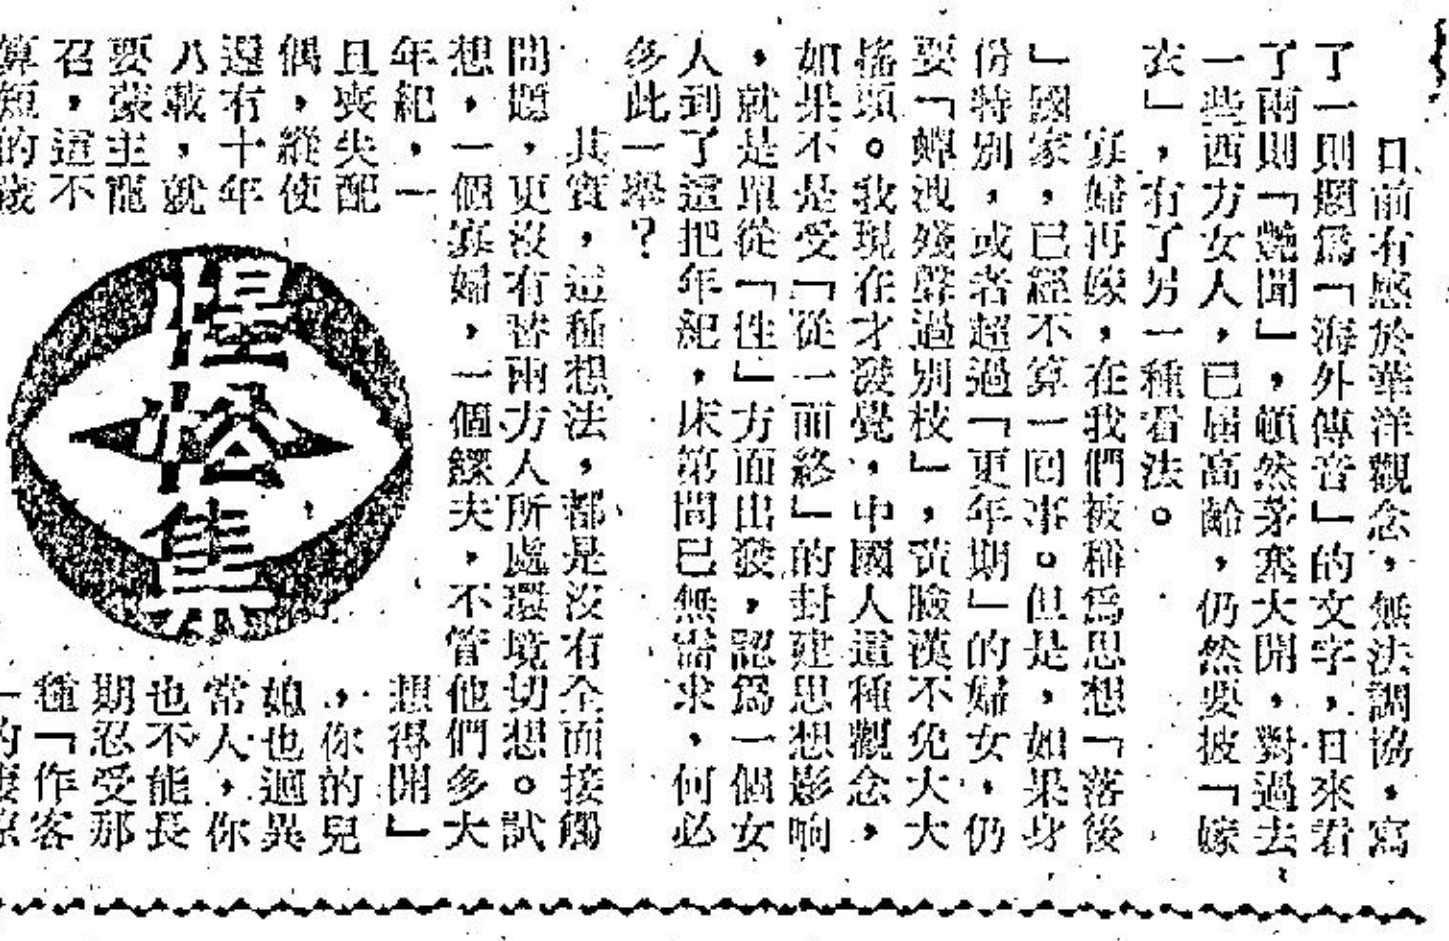 日前有感於華洋觀念,無法調協,寫
了一則題爲「海外傳音」的文字,日來看
了兩則「艶聞」,頓然茅塞大開,對過去
一些西方女人,已屆高齡,仍然要披「嫁
衣」,有了另一種看法。
寡婦再嫁,在我們被稱爲思想「落後
」國家,已經不算一回事。但是,如果身
份特別,或者超過「更年期」的婦女,仍
要「蟬洩殘聲過別枝」,黃臉漢不免大大
搖頭。我現在才發覺,中國人這種觀念,
如果不是受「從一而終」的封建思想影响
,就是單從「性」方面出發,認爲一個女
人到了這把年紀,床第間已無需求,何必
多此一舉?
其實,這種想法,都是沒有全面接觸
問題,更沒有替兩方人所處環境切想。試
想,一個寡婦,一個鰥夫,不管他們多大
年紀,一
且喪失配
偶,縱使
還有十年
八載,就
要蒙主寵
召,這不
算短的歲
惺忪集
想得開」
,你的兒
媳也迥異
常人,你
也不能長
期忍受那
種「作客